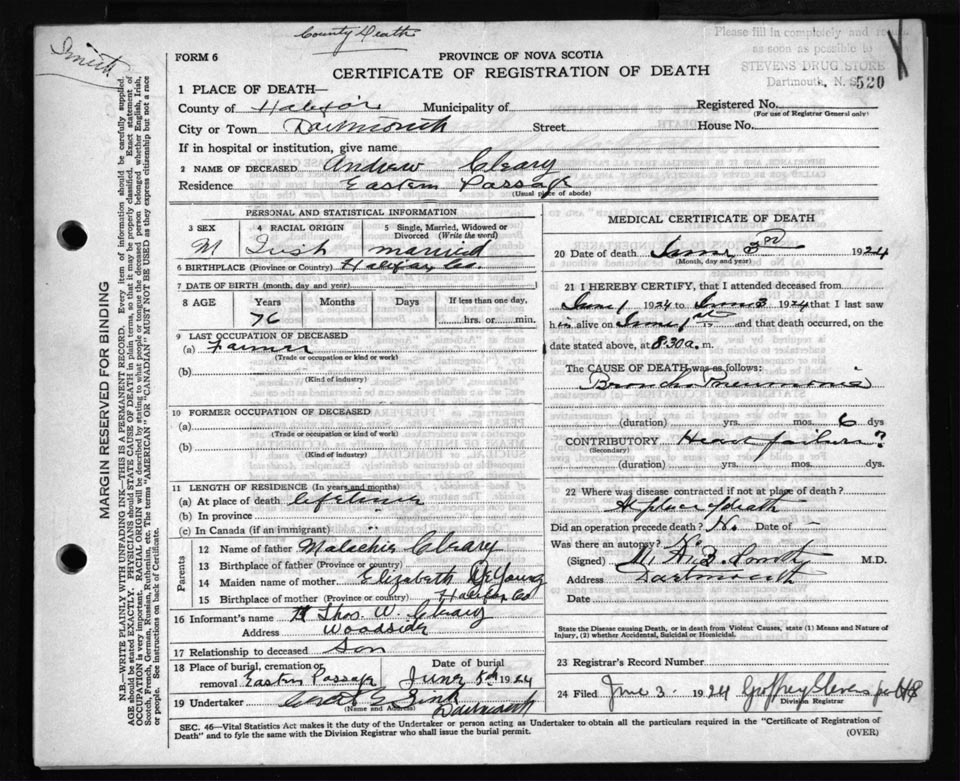 County Death
Smith
Please fill in completely and
as soon as possible to
STEVENS DRUG STORE
Dartmouth, N. S.
520
FORM 6
PROVINCE OF NOVA SCOTIA
CERTIFICATE OF REGISTRATION OF DEATH
1 PLACE OF DEATH—
County of Halifax Municipality of
Registered No.
(For use of Registrar General only)
City or Town Dartmouth Street House No.
If in hospital or institution, give name
2 NAME OF DECEASED Andrew Cleary
Residence Eastern Passage
(Usual place of abode)
PERSONAL AND STATISTICAL INFORMATION
3 SEX 4 RACIAL ORIGIN 5 Single, Married, Widowed or Divorced (Write the word)
M Irish married
6 BIRTHPLACE (Province or Country) Halifax Co.
7 DATE OF BIRTH (month, day and year)
8 AGE Years Months Days If less than one day,
76 hrs. or min.
9 LAST OCCUPATION OF DECEASED
(a) Farmer
(Trade or occupation or kind or work)
(b)
(Kind of industry)
10 FORMER OCCUPATION OF DECEASED
(a)
(Trade or occupation or kind or work)
(b)
(Kind of industry)
11 LENGTH OF RESIDENCE (In years and months)
(a) At place of death lifetime
(b) In province
(c) In Canada (if an immigrant)
Parents
12 Name of father Malachie Cleary
13 Birthplace of father (Province or country)
14 Maiden name of mother Elizabeth DeYoung
15 Birthplace of mother (Province or country) Halifax Co
16 Informant's name Thos. W. Cleary
Address Woodside
17 Relationship to deceased Son
18 Place of burial, cremation or removal Eastern Passage
Date of burial
June 5th 1924
19 Undertaker
(Name and Address)
Dartmouth
MEDICAL CERTIFICATE OF DEATH
20 Date of death June 3rd 1924
(Month, day and year)
21 I HEREBY CERTIFY, that I attended deceased from
June 1 1924 to June 3 1924 that I last saw
him alive on June 1st and that death occurred, on the
date stated above, at 8.30 a. m.
The CAUSE OF DEATH was as follows:
Broncho Pneumonia
(duration) yrs. mos. 6 dys
CONTRIBUTORY Heart failure?
(Secondary)
(duration) yrs. mos. dys.
22 Where was disease contracted if not at place of death?
At place of death
Did an operation precede death? No Date of -
Was there an autopsy? No
(Signed) M.D.
Address Dartmouth
Date
State the Disease causing Death, or in death from Violent Causes, state (1) Means and Nature of
Injury, (2) whether Accidental, Suicidal or Homicidal.
23 Registrar's Record Number
24 Filed June 3. 1924 Geoffrey Stevens per
Division Registrar
SEC. 46—Vital Statistics Act makes it the duty of the Undertaker or person acting as Undertaker to obtain all the particulars required in the "Certificate of Registration of
Death" and to fyle the same with the Division Registrar who shall issue the burial permit.
(OVER)
MARGIN RESERVED FOR BINDING
N.B.—WRITE PLAINLY WITH UNFADING INK—THIS IS A PERMANENT RECORD. Every item of information should be carefully supplied.
AGE should be stated EXACTLY. PHYSICIANS should STATE CAUSE OF DEATH in plain terms, so that it may be properly classified. Exact statement of
OCCUPATION is very important. RACIAL ORIGIN will be described by stating to what people or tongue the deceased person belonged whether English, Irish,
Scotch, French, German, Russian, Ruthenian, etc. The terms "AMERICAN" OR "CANADIAN" MUST NOT BE USED as they express citizenship but not a race
or people. See instructions on back of Certificate.